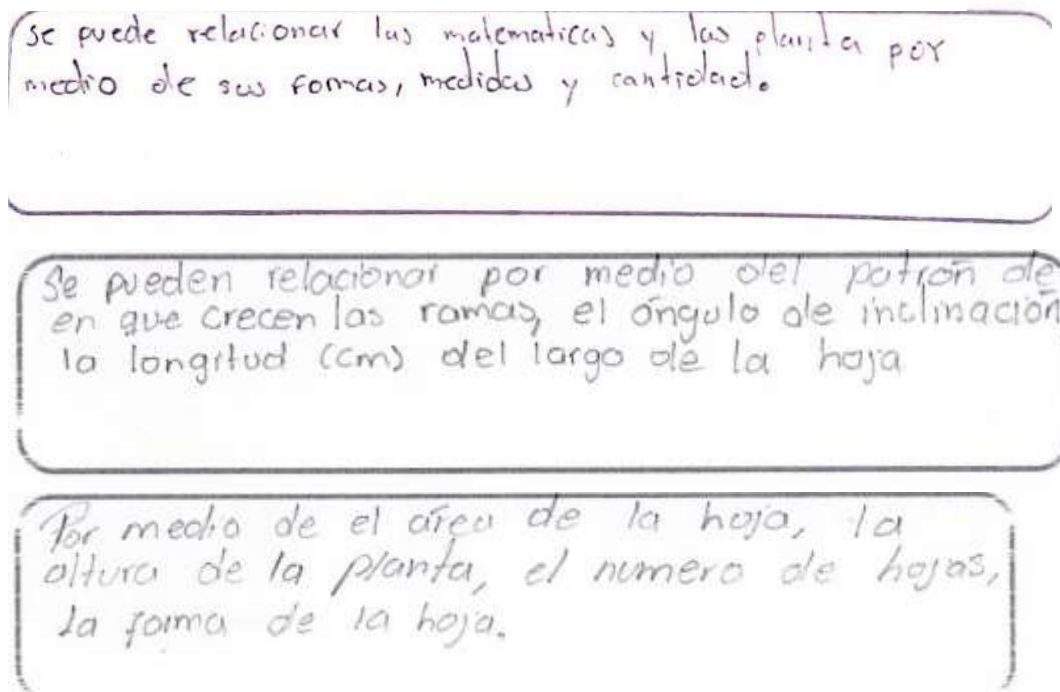 se puede relacionar las matematicas y las planta por
medio de sus formas, medidas y cantidad.
Se pueden relacionar por medio del patrón de
en que crecen las ramas, el ángulo de inclinación
la longitud (cm) del largo de la hoja
Por medio de el área de la hoja, la
altura de la planta, el numero de hojas,
la forma de la hoja.